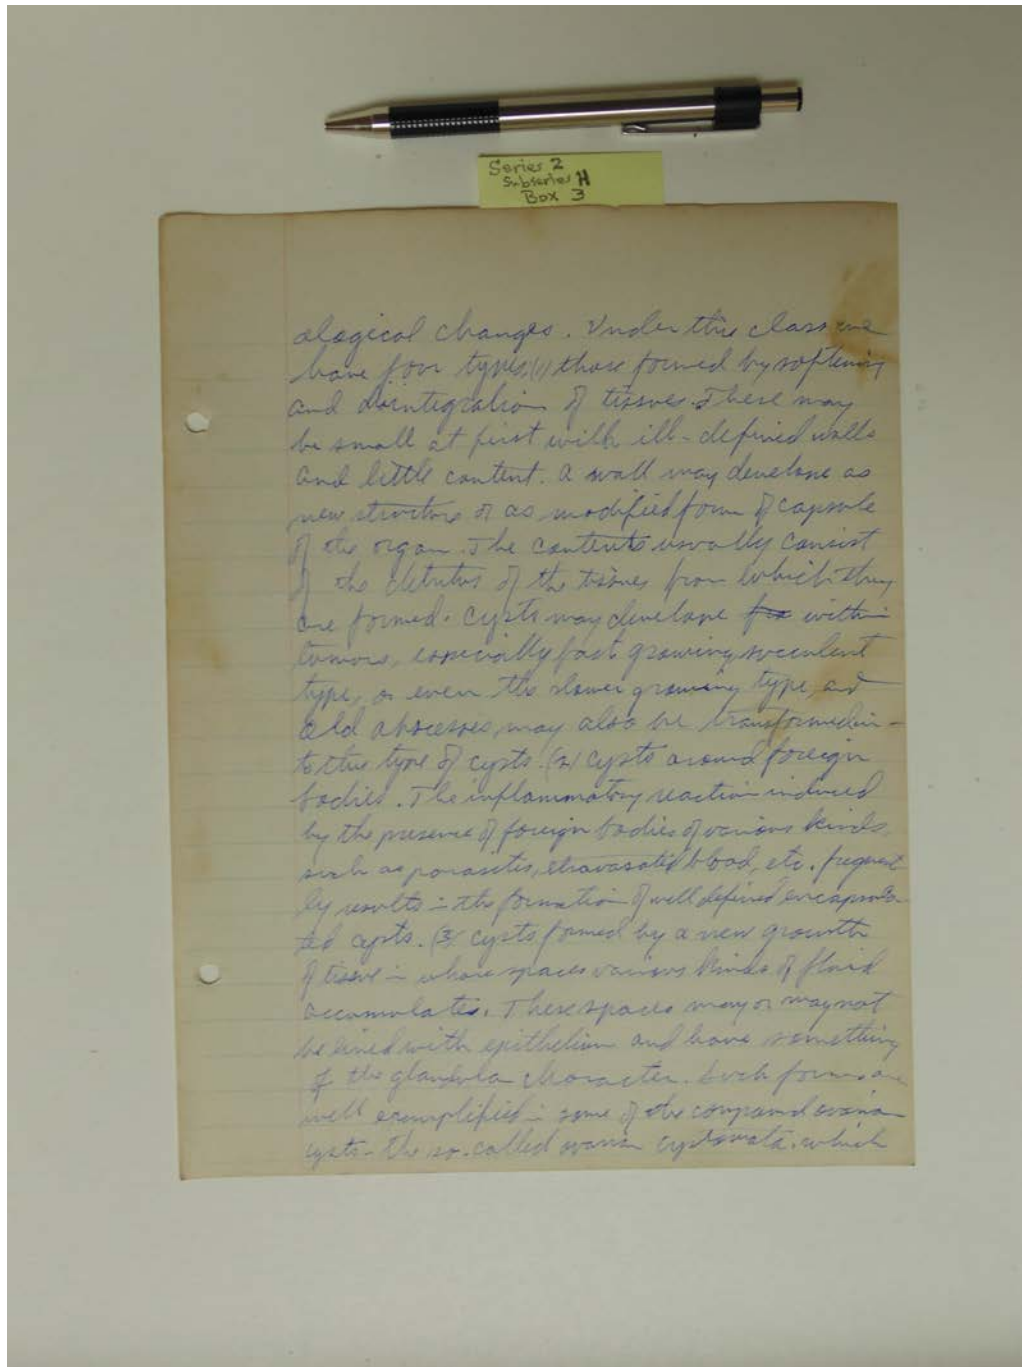 Series 2
Subseries H
Box 3
ological changes. Under this class we
have four types, (1) those formed by softening
and disintegration of tissues. These may
be small at first with ill-defined walls
and little content. A wall may develope as
new structure or as modified form of capsule
of the organ. The contents usually consist
of the detritus of the tissues from which they
are formed. Cysts may develope within
tumors, especially fast growing succulent
type, or even the slower growing type, and
old abscesses, may also be transformed in-
to this type of cysts. (2) cysts around foreign
bodies. The inflammatory reaction induced
by the presence of foreign bodies of various kinds,
such as parasites, etravasated blood, etc. frequent
ly results in the formation of well defined encapsula-
ted cysts. (3) cysts formed by a new growth
of tissue in whose spaces various kinds of fluid
accumulates. These spaces may or may not
be lined with epithelium and have something
of the glandula character. Such forms are
well exemplified in some of the compound ovarian
cysts - the so-called ovarian cystomata. which